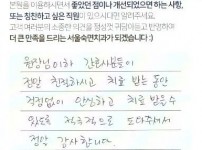 본원을 이용하시면서 좋았던 점이나 개선되었으면 하는 사항,
또는 칭찬하고 싶은 직원이 있으시다면 알려주세요.
고객 여러분의 소중한 의견을 정성껏 귀담아듣고 반영하여
더 큰 만족을 드리는 서울숙면치과가 되겠습니다 :)
원장님이하 간호사분들이
정말 친절하시고 치료 받는 동안
걱정없이 안심하고 치료 받을수
있도록 적극적으로 도와주셔서
정말 감사합니다.